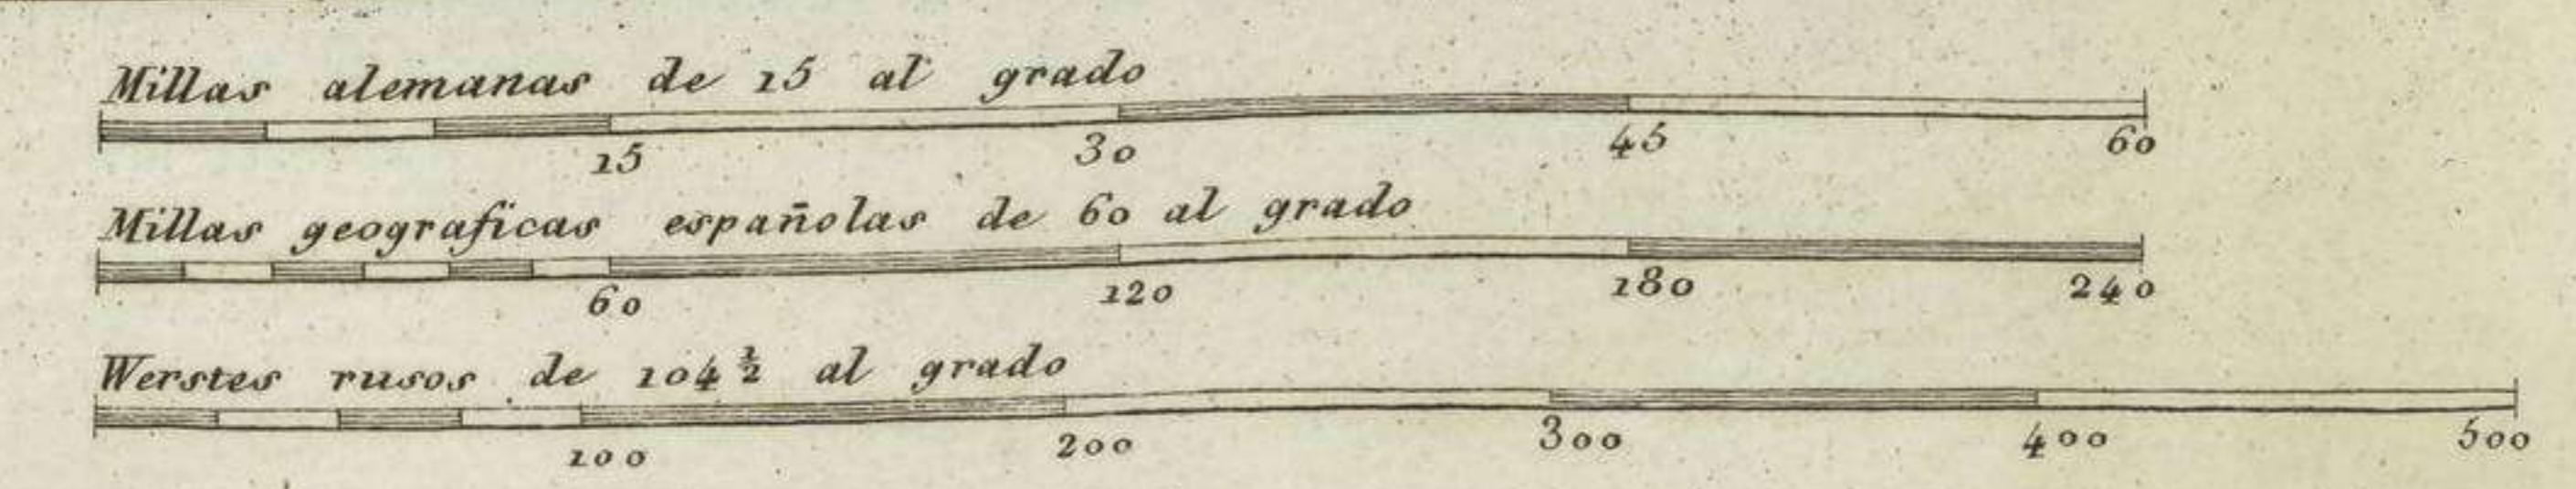 Millas alemanas de 15 al grado
15 30 45 60
Millas geograficas españolas de 60 al grado
60 120 180 240
Werstes rusos de 104 ½ al grado
100 200 300 400 500